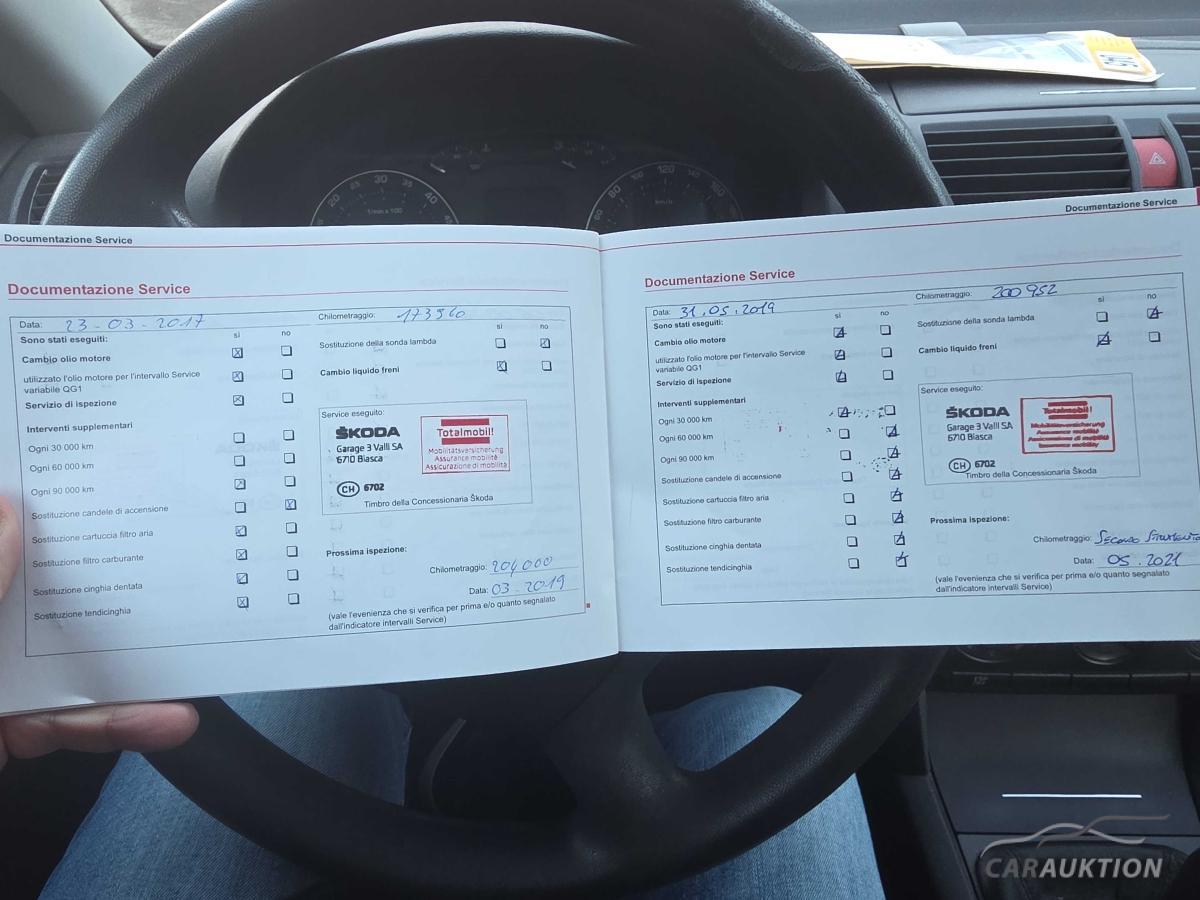 15 20 25 30 35 40 45
1/min x 100
60 80 100 120 140 160
km/h
Documentazione Service
Documentazione Service
Data: 23-03-2017
Chilometraggio: 173960
Sono stati eseguiti:
sì no
sì no
Cambio olio motore
Sostituzione della sonda lambda
utilizzato l'olio motore per l'intervallo Service
variabile QG1
Cambio liquido freni
Servizio di ispezione
Interventi supplementari
Ogni 30 000 km
Ogni 60 000 km
Ogni 90 000 km
Sostituzione candele di accensione
Sostituzione cartuccia filtro aria
Sostituzione filtro carburante
Sostituzione cinghia dentata
Sostituzione tendicinghia
Service eseguito:
ŠKODA
Garage 3 Valli SA
6710 Biasca
CH 6702
Totalmobil!
Mobilitätsversicherung
Assurance mobilité
Assicurazione di mobilità
Timbro della Concessionaria Škoda
Prossima ispezione:
Chilometraggio: 204000
Data: 03-2019
(vale l'evenienza che si verifica per prima e/o quanto segnalato
dall'indicatore intervalli Service)
Documentazione Service
Documentazione Service
Data: 31.05.2019
Chilometraggio: 200952
Sono stati eseguiti:
sì no
sì no
Cambio olio motore
Sostituzione della sonda lambda
utilizzato l'olio motore per l'intervallo Service
variabile QG1
Cambio liquido freni
Servizio di ispezione
Interventi supplementari
Ogni 30 000 km
Ogni 60 000 km
Ogni 90 000 km
Sostituzione candele di accensione
Sostituzione cartuccia filtro aria
Sostituzione filtro carburante
Sostituzione cinghia dentata
Sostituzione tendicinghia
Service eseguito:
ŠKODA
Garage 3 Valli SA
6710 Biasca
CH 6702
Totalmobil!
Mobilitätsversicherung
Assurance mobilité
Assicurazione di mobilità
Timbro della Concessionaria Škoda
Prossima ispezione:
Chilometraggio: Secondo
Data: 05.2021
(vale l'evenienza che si verifica per prima e/o quanto segnalato
dall'indicatore intervalli Service)
CARAUKTION